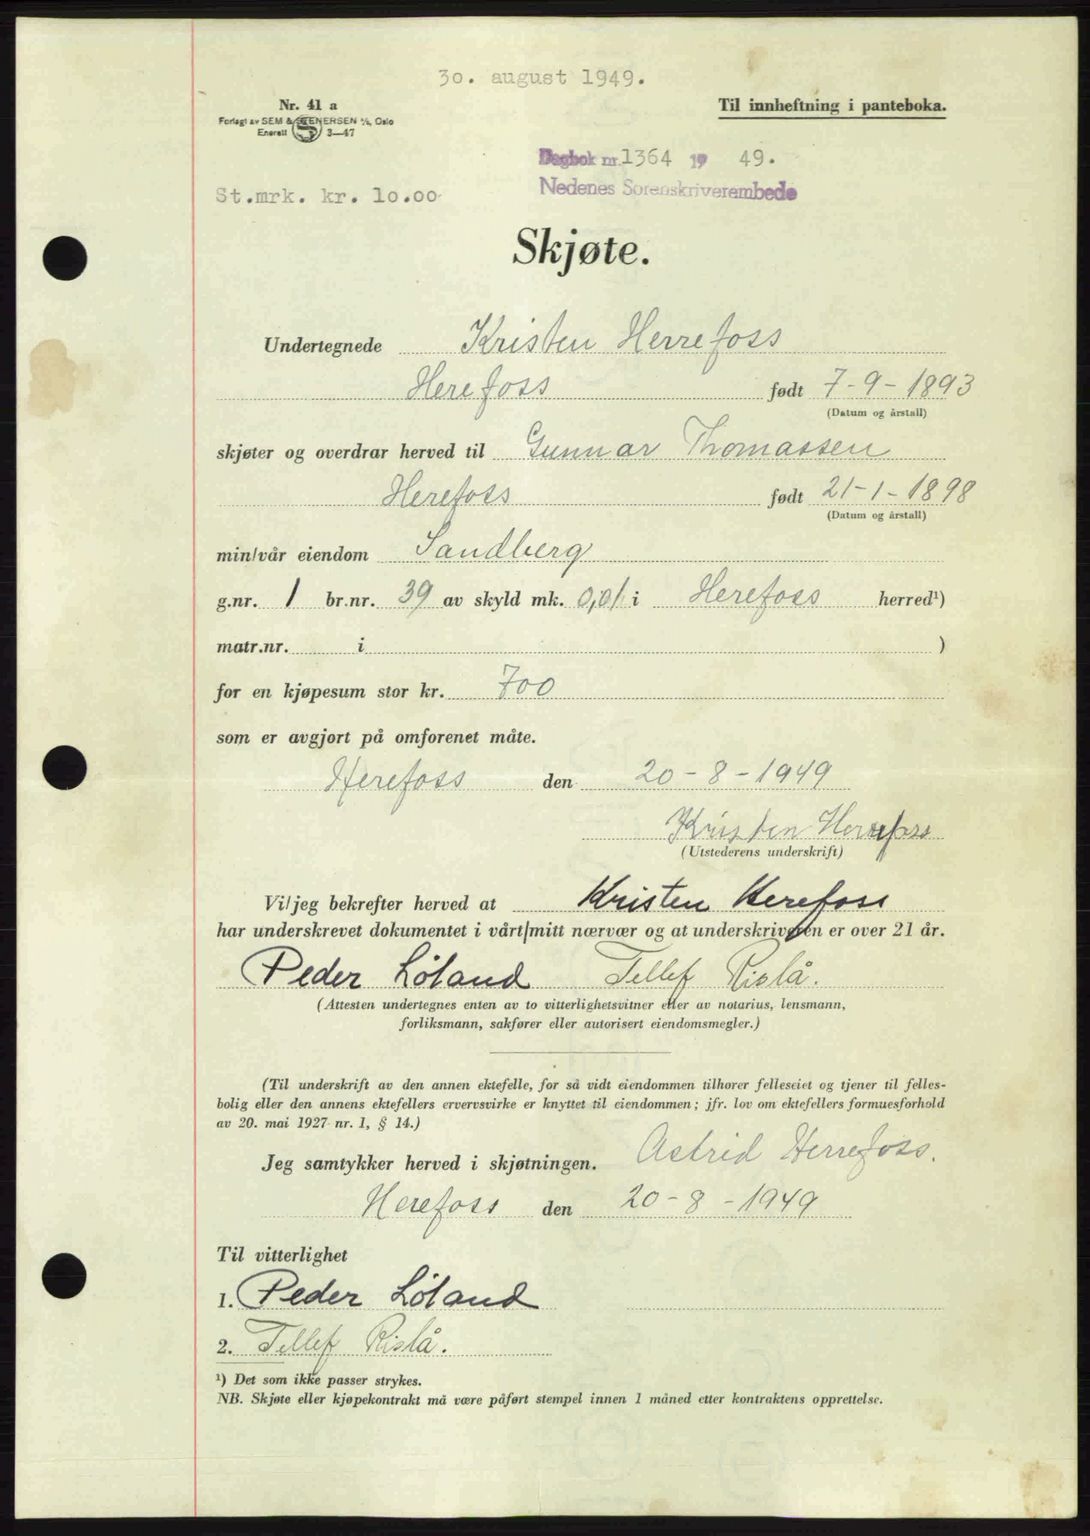 30. august 1949.
Nr. 41 a
Til innheftning i panteboka.
Forlagt av SEM & STENERSEN A/S, Oslo
Enerett 3—47
Dagbok nr. 1364 19 49.
Nedenes Sorenskriverembede
St.mrk. kr. 10.00
Skjøte.
Undertegnede Kristen Herrefoss
Herefoss født 7-9-1893
(Datum og årstall)
skjøter og overdrar herved til Gunnar Thomassen
Herefoss født 21-1-1898
(Datum og årstall)
min/vår eiendom Sandberg
g.nr. 1 br.nr. 39 av skyld mk. 0,01 i Herefoss herred¹)
matr.nr. i )
for en kjøpesum stor kr. 700
som er avgjort på omforenet måte.
Herefoss den 20-8-1949
Kristen Herrefoss
(Utstederens underskrift)
Vi/jeg bekrefter herved at Kristen Herefoss
har underskrevet dokumentet i vårt/mitt nærvær og at underskriveren er over 21 år.
Peder Løland Tellef Rislå.
(Attesten undertegnes enten av to vitterlighetsvitner eller av notarius, lensmann,
forliksmann, sakfører eller autorisert eiendomsmegler.)
(Til underskrift av den annen ektefelle, for så vidt eiendommen tilhører felleseiet og tjener til felles-
bolig eller den annens ektefellers ervervsvirke er knyttet til eiendommen; jfr. lov om ektefellers formuesforhold
av 20. mai 1927 nr. 1, § 14.)
Jeg samtykker herved i skjøtningen. Astrid Herrefoss.
Herefoss den 20-8-1949
Til vitterlighet
1. Peder Løland
2. Tellef Rislå.
¹) Det som ikke passer strykes.
NB. Skjøte eller kjøpekontrakt må være påført stempel innen 1 måned etter kontraktens opprettelse.